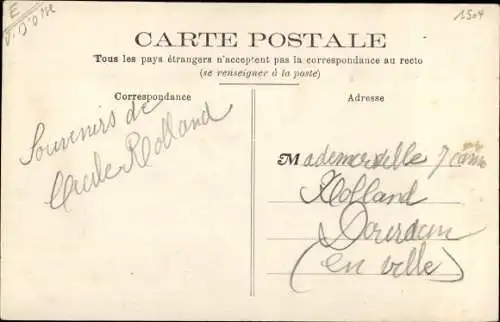 E
V. D'Oise
1504
CARTE POSTALE
Tous les pays étrangers n'acceptent pas la correspondance au recto
(se renseigner à la poste)
Correspondance
Adresse
Souvenirs de
Cécile Rolland
Mademoiselle
Rolland
Dourdan
(en ville)